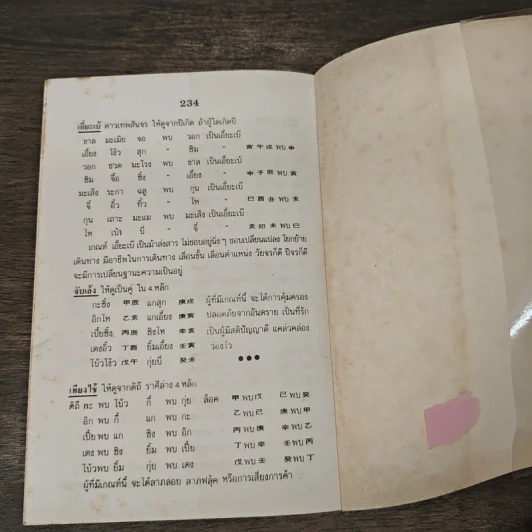 234
เอี๊ยะเบ้ ดาวเทพสัญจร ให้ดูจากปีเกิด ถ้าผู้ใดเกิดปี
ขาล มะเมีย จอ พบ วอก เป็นเอี๊ยะเบ้
เอี้ยง โง้ว สุก " ซิม " 寅午戌 พบ 申
วอก ชวด มะโรง พบ ขาล เป็นเอี๊ยะเบ้
ซิม จื้อ ซิ้ง " เอี้ยง " 申子辰 พบ 寅
มะเส็ง ระกา ฉลู พบ กุน เป็นเอี๊ยะเบ้
จี๋ อิ้ว ทิ่ว " ไห " 巳酉丑 พบ 亥
กุน เถาะ มะแม พบ มะเส็ง เป็นเอี๊ยะเบ้
ไห เบ้า บี่ " จี๋ " 亥卯未 พบ 巳
เกณฑ์ เอี๊ยะเบ้ เป็นม้าส่งสาร ไม่ชอบอยู่นิ่งๆ ชอบเปลี่ยนแปลง โยกย้าย
เดินทาง มีอาชีพในการเดินทาง เลื่อนชั้น เลื่อนตำแหน่ง วัยจรก็ดี ปีจรก็ดี
จะมีการเปลี่ยนฐานะความเป็นอยู่
ให้ดูเป็นคู่ ใน 4 หลัก
กะซิ้ง 甲辰 แกสุก 庚戌 ผู้ที่มีเกณฑ์นี้ จะได้การคุ้มครอง
อิกไห 乙亥 แกเอี้ยง 庚寅 ปลอดภัยจากอันตราย เป็นที่รัก
เปี้ยซิ้ง 丙辰 ซิงไห 辛亥 เป็นผู้มีสติปัญญาดี แคล่วคล่อง
เตงอิ้ว 丁酉 ยิ้มเอี้ยง 壬寅 ว่องไว
โบ้วโง้ว 戊午 กุ่ยบี่ 癸未 ●●●
เทียงไช้ ให้ดูจากดิถี ราศีล่าง 4 หลัก
ดิถี กะ พบ โบ้ว กี้ พบ กุ่ย ล็อค 甲 พบ 戊 己 พบ 癸
อิก พบ กี้ แก พบ กะ 乙 พบ 己 庚 พบ 甲
เปี้ย พบ แก ซิง พบ อิก 丙 พบ 庚 辛 พบ 乙
เตง พบ ซิง ยิ้ม พบ เปี้ย 丁 พบ 辛 壬 พบ 丙
โบ้ว พบ ยิ้ม กุ่ย พบ เตง 戊 พบ 壬 癸 พบ 丁
ผู้ที่มีเกณฑ์นี้ จะได้ลาภลอย ลาภฟลุ้ค หรือการเสี่ยงการค้า